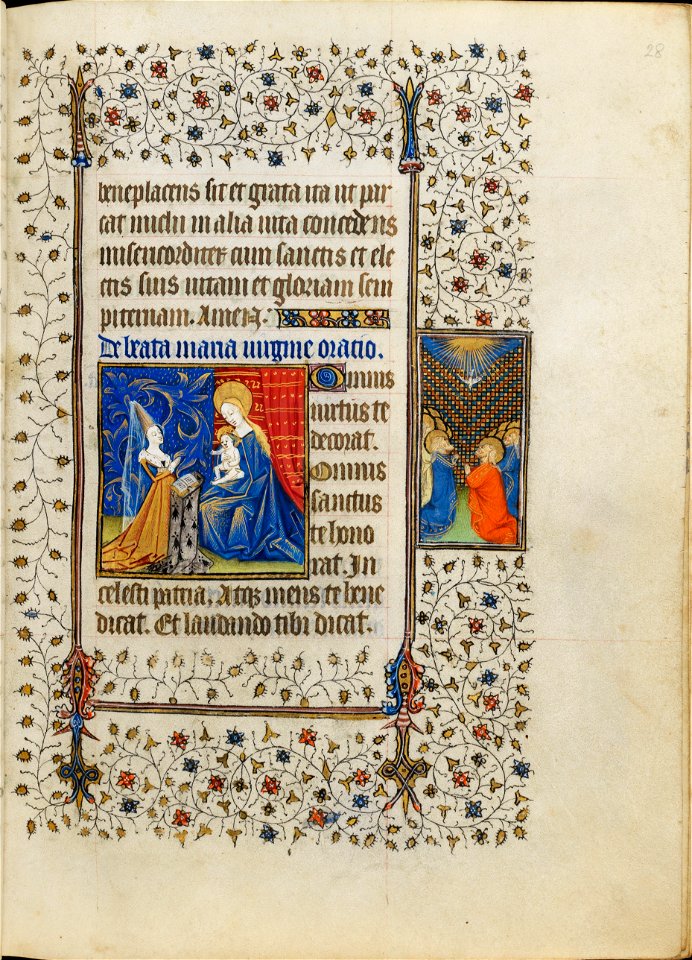 28
beneplacens sit et grata ita ut pur
cat michi in alia vita concedens
misericorditer cum sanctis et ele
ctis suis vitam et gloriam sem
piternam. Amen.
De beata maria virgine oratio.
Omnis
virtus te
decorat.
Omnis
sanctus
te hono
rat. In
celesti patria, Atqz mens te bene
dicat. Et laudando tibi dicat.